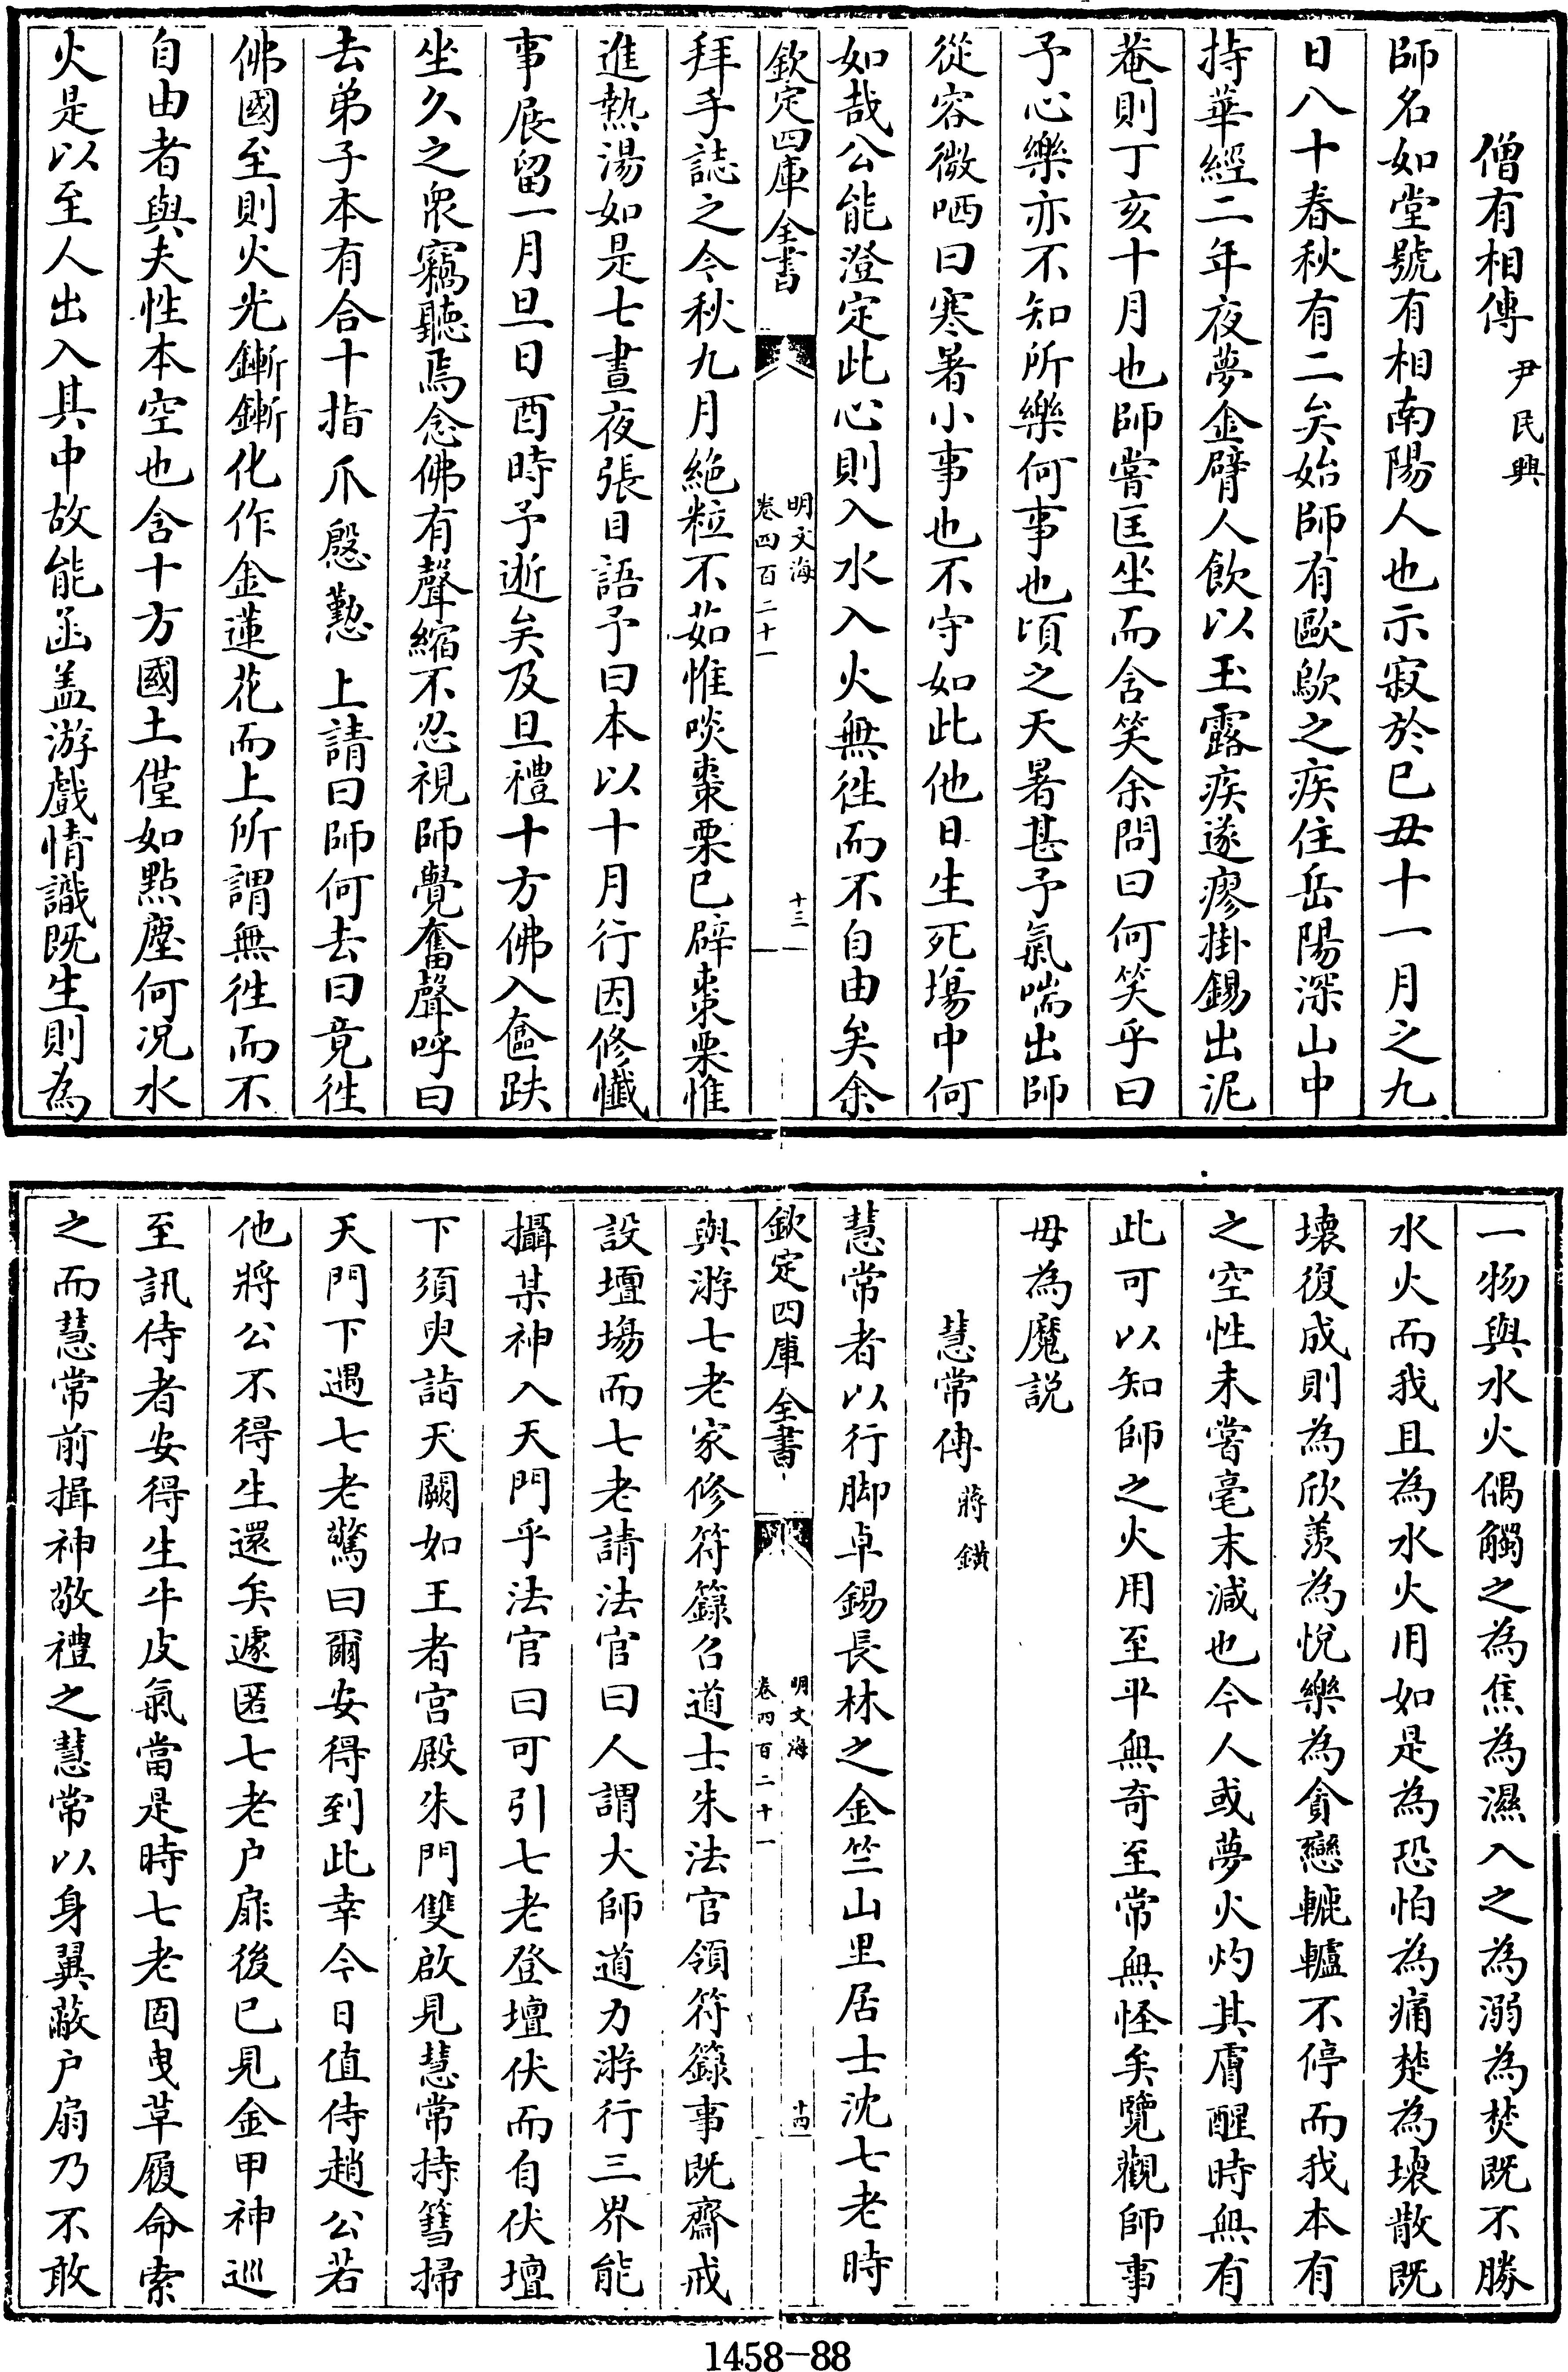 僧有相傳尹民興
師名如堂號有相南陽人也示寂於己丑十一月之九
日八十春秋有二矣始師有歐歍之疾住岳陽深山中
持華經二年夜夢金臂人飲以玉露疾遂瘳掛錫出泥
菴則丁亥十月也師嘗匡坐而含笑余問曰何笑乎曰
予心樂亦不知所樂何事也頃之天暑甚予氣喘出師
從容微哂曰寒暑小事也不守如此他日生死塲中何
如哉公能澄定此心則入水入火無徃而不自由矣余
欽定四庫全書
明文海
卷四百二十一
十三
拜手誌之今秋九月絶粒不茹惟啖棗栗已辟棗栗惟
進熱湯如是七晝夜張目語予曰本以十月行因修懴
事展留一月旦日酉時予逝矣及旦禮十方佛入龕趺
坐久之衆竊聽焉念佛有聲縮不忍視師覺奮聲呼曰
去弟子本有合十指爪慇懃上請曰師何去曰竟徃
佛國至則火光鏩鏩化作金蓮花而上所謂無徃而不
自由者與夫性本空也含十方國土僅如點塵何况水
火是以至人出入其中故能函盖游戲情識既生則為
一物與水火偶觸之為焦為濕入之為溺為焚既不勝
水火而我且為水火用如是為恐怕為痛楚為壊散既
壊復成則為欣羨為悅樂為貪戀轆轤不停而我本有
之空性未嘗毫末減也今人或夢火灼其膚醒時無有
此可以知師之火用至平無奇至常無怪矣覽觀師事
毋為魔説
慧常傳蔣鐄
慧常者以行脚卓錫長林之金竺山里居士沈七老時
欽定四庫全書
明文海
卷四百二十一
十四
與游七老家修符籙召道士朱法官領符籙事既齋戒
設壇塲而七老請法官曰人謂大師道力游行三界能
攝某神入天門乎法官曰可引七老登壇伏而自伏壇
下須臾詣天闕如王者宫殿朱門雙啟見慧常持篲掃
天門下遇七老驚曰爾安得到此幸今日值侍趙公若
他將公不得生還矣遽匿七老户扉後已見金甲神巡
至訊侍者安得生牛皮氣當是時七老固曳草履命索
之而慧常前揖神敬禮之慧常以身翼蔽户扇乃不敢
1458-88